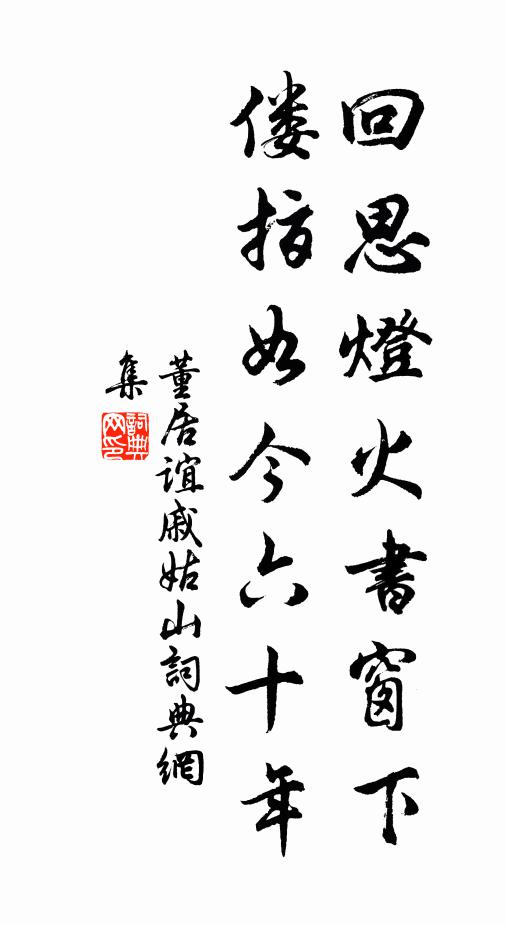 回思燈火書窗下
僂指如今六十年
董居誼戚姑山詞典網
集
詞典网印